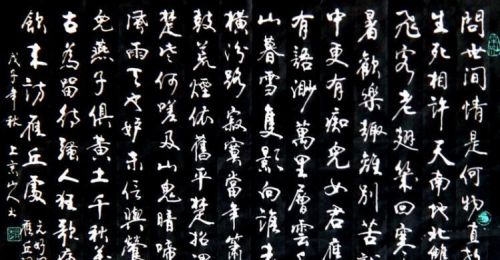 問世間情是何物直教
生死相許天南地北雙
飛客老翅幾回寒
暑歡樂趣離別苦
中更有癡兒女君應
有語渺萬里層雲
山暮雪隻影向誰去
橫汾路寂寞當年簫
鼓荒煙依舊平楚招
楚些何嗟及山鬼暗啼
風雨天也妒未信與鶯
兒燕子俱黃土千秋萬
古為留待騷人狂歌痛
飲來訪雁丘處
元好問
雁丘
戊子年秋上京山人